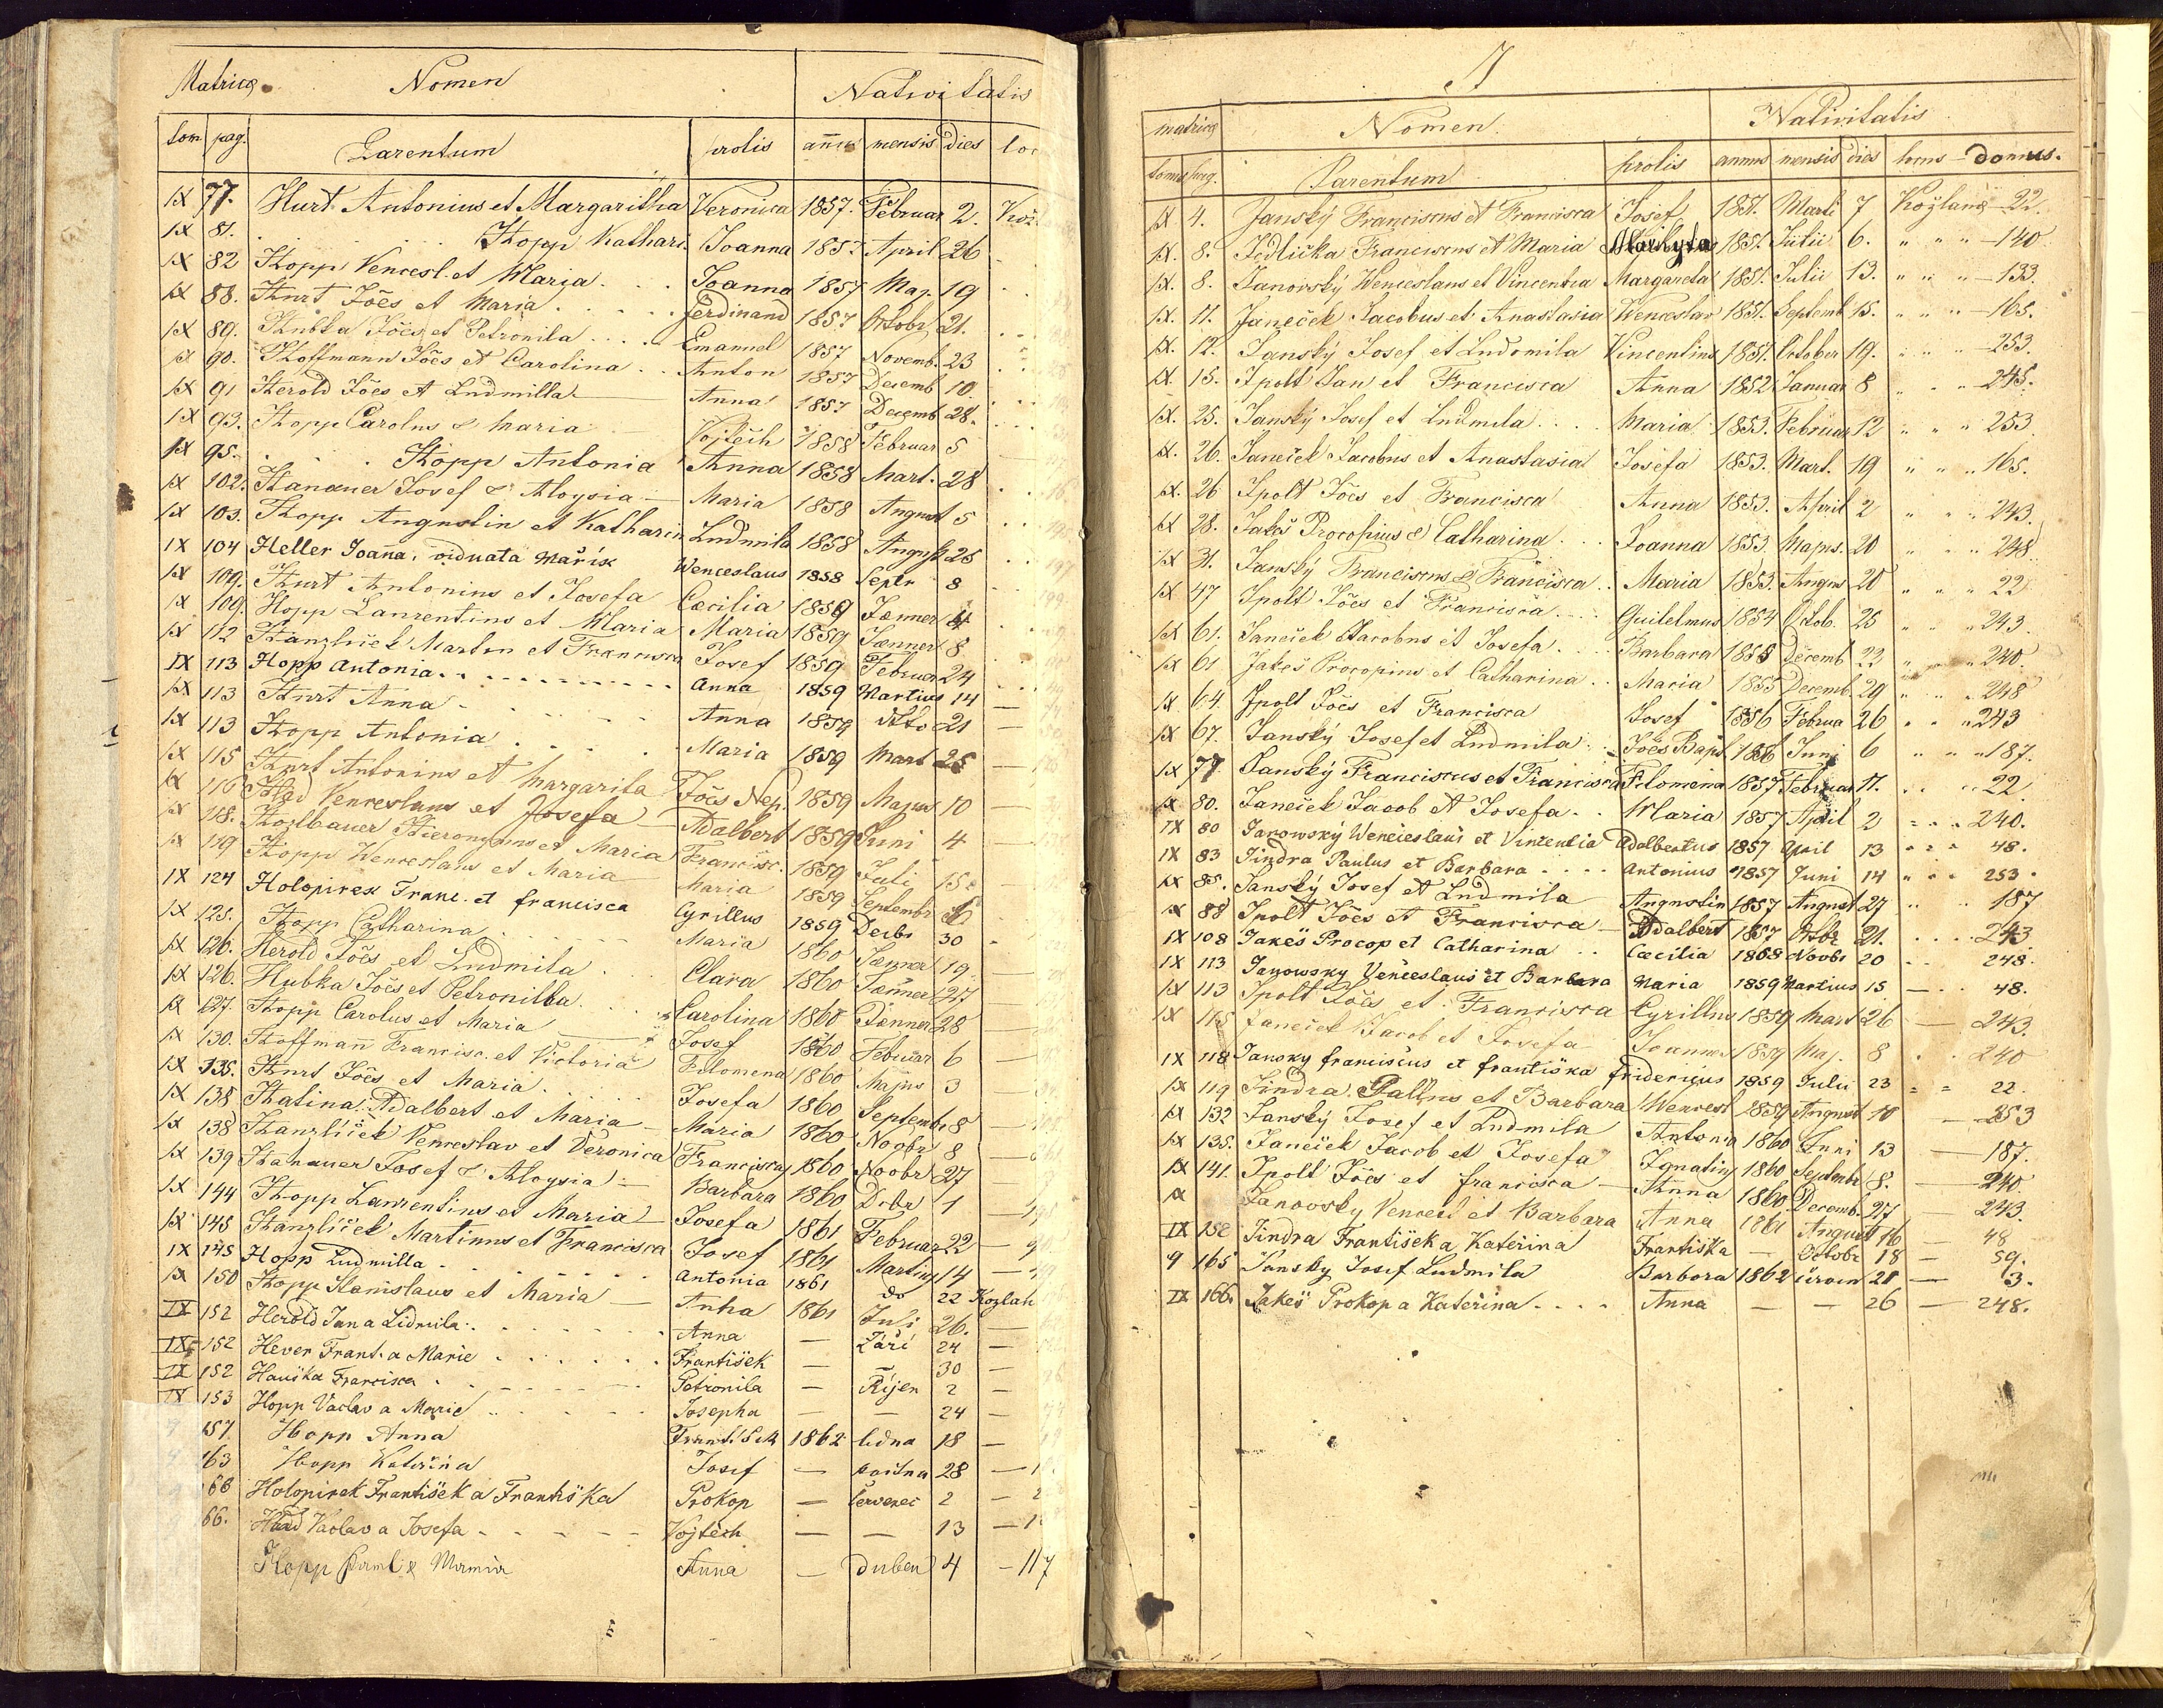 Matricæ Nomen Nativitatis
tom pag. Parentum prolis annus mensis dies loc
IX 77. Hurt Antonius et Margaritha Veronica 1857. Februar 2. Kož.
IX 81. . . . . . Hopp Kathari. Joanna 1857. April 26
IX 82 Hopp Vencesl. et Maria . . Joanna 1857 Maj. 19
IX 88. Hurt Jões et Maria . . . . Ferdinand 1857 Octobr. 21.
IX 89. Hubka Jões et Petronila . . . Emanuel 1857 Novemb. 23
IX 90. Hoffmann Jões et Carolina . . Anton 1857 Decemb 10.
IX 91 Herold Jões et Ludmilla Anna 1857 Decemb 28.
IX 93. Hopp Carolus & Maria Vojtěch 1858 Februar 5
IX 95. . . . Hopp Antonia Anna 1858 Mart. 28
IX 102. Hanauer Josef & Aloysia — Maria 1858 August 5
IX 103. Hopp Augustin et Katharin Ludmila 1858 August 25
IX 104 Heller Joanna, viduata Mařík Wenceslaus 1858 Septr 8
IX 109. Hurt Antonius et Josefa Cæcilia 1859 Jænner 4
IX 109. Hopp Laurentius et Maria Maria 1859 Jænner 8
IX 112 Hanzlíček Martin et Francisca Josef 1859 Februar 24
IX 113 Hopp Antonia . . . . . . Anna 1859 Martius 14
IX 113 Hurt Anna . . . . . . Anna 1859 dtto 21
IX 113 Hopp Antonia . . . . . Maria 1859 Mart 25
IX 115 Hurt Antonius et Margarita Jões Nep. 1859 Majus 10
IX 116 Had Venceslaus et Josefa — Adalbert 1859 Juni 4
IX 118. Holbauer Hieronymus et Maria Francisc. 1859 Juli 15
IX 119 Hopp Wenceslaus et Maria Maria 1859 Septembr
IX 124 Holopirek Franc. et francisca Cyrillus 1859 Decbr 30
IX 125. Hopp Catharina . . . . Maria 1860 Jænner 19.
IX 126. Herold Jões et Ludmila . . Clara 1860 Jænner 27
IX 126. Hubka Jões et Petronilla . . Carolina 1860 Jænner 28
IX 127. Hopp Carolus et Maria — Josef 1860 Februar 6
IX 130. Hoffmann Francisc. et Victoria Filomena 1860 Majus 3
IX 135. Hurt Jões et Maria . . . . Josefa 1860 Septemb 8
IX 138 Hatina Adalbert et Maria — Maria 1860 Noobr 8
IX 138 Hanzlíček Venceslav et Veronica Francisca 1860 Noobr 27
IX 139 Hanauer Josef & Aloysia — Barbara 1860 Dcbr 1
IX 144 Hopp Laurentius et Maria — Josefa 1861 Februar 22
IX 145 Hanzlíček Martinus et Francisca Josef 1861 Martius 14
IX 145 Hopp Ludmilla . . . . . . Antonia 1861 do 22 Kozlan
IX 150 Hopp Stanislaus et Maria — Anna 1861 Juli 26.
IX 152 Herold Jan a Lidmila . . . . . Anna — Září 24 —
IX 152 Hever Frant. a Marie . . . . . František — — 30 —
IX 152 Hauška Francisca . . . . . . Petronila — Říjen 2 —
IX 153 Hopp Václav a Marie . . . . . Josepha — — 24 —
157. Hopp Anna František 1862 ledna 18 —
163 Hopp Kateřina Josef — května 28 —
66 Holopirek František a Františka Prokop — červenec 2 —
66. Had Václav a Josefa . . . . . Vojtěch — — 13 —
Hopp Karel & Mamia Anna — Duben 4 — 117
J
matricæ Nomen. Nativitatis
tomus pag. Parentum prolis annus mensis dies locus domus.
IX 4. Janský Franciscus et Francisca Josef 1851. Marti 7 Kožlana 22.
IX. 8. Jedlička Franciscus et Maria 1851. Julii 6. " " " —140
IX. 8. Janovský Wenceslaus et Vincentia Margareta 1851. Julii 13. " " " —133.
IX. 11. Janeček Jacobus et Anastasia Wenceslav 1851. Septemb 15. " " " —165.
IX. 12. Janský Josef et Ludomila Vincentius 1851. October 19. " " " —253.
IX. 15. Ipolt Jan et Francisca Anna 1852 Januar 8 " " " —243.
IX. 25. Janský Josef et Ludmila . . . . Maria 1853. Februar 12 " " " 253
IX. 26. Janeček Jacobus et Anastasia Josefa 1853. Mart. 19 " " " 165.
IX. 26 Ipolt Jões et Francisca Anna 1853. April 2 " " " 243.
IX 28. Jakeš Procopius & Catharina . . . Joanna 1853 Majus. 20 " " " 248
IX 31. Janský Franciscus & Francisca . . Maria 1853. Augus 20 " " " 22
IX 47 Ipolt Jões et Francisca . . . Guilelmus 1854 Octob. 25 " " " 243.
IX 61. Janeček Jacobus et Josefa . . . Barbara 1855 Decemb 22 " " " 240.
IX 61 Jakeš Procopius et Catharina . . Maria 1855 Decemb. 29 " " " 248
IX 64. Ipolt Jões et Francisca Josef 1856 Februa 26 " " " 243
IX 67. Janský Josef et Ludmila . . Jões Bapt. 1856 Juni 6 " " " 187.
IX 77. Janský Franciscus et Francisca Filomena 1857 Februar 11. . . . 22
IX 80. Janeček Jacob et Josefa . . Maria 1857 April 2 " " " 240.
IX 80 Janowský Wenceslaus et Vincentia Adalbertus 1857 April 13 " " " 48.
IX 83 Jindra Paulus et Barbara . . . . Antonius 1857 Juni 14 " " " 253.
IX 85. Janský Josef et Ludmila Augustin 1857 August 27 " " 187
IX 88 Ipolt Jões et Francisca — Adalbert 1857 Octbr 21. . . . 243
IX 108 Jakeš Procop et Catharina . . Cæcilia 1858 Noobr 20 . . 248.
IX 113 Janowsky Venceslaus et Barbara Maria 1859 Martius 15 — . . 48.
IX 113 Ipolt Jões et Francisca Cyrillus 1859 Mart 26 — 243.
IX 115 Janeček Jacob et Josefa Joannes 1859 Maj. 8 . . 240
IX 118 Jansky franciscus et františka Fridericus 1859 Julii 23 = = 22.
IX 119 Jindra Paulus et Barbara Wencesl 1859 August 10 — 253
IX 132 Janský Josef et Ludmila Antonia 1860 Juni 13 — 187.
IX 135. Janeček Jacob et Josefa Ignatius 1860 Septembr 8. — 240
IX 141. Ipolt Jões et francisca — Anna 1860. Decemb. 27 — 243.
IX Janovsky Vencesl et Barbara Anna 1861 August 16 — 48
IX 152 Jindra František a Kateřina Františka — Octobr 18 — 59.
9 165 Janský Josef Ludmila Barbora 1862 červen 28 — 3.
IX 166. Jakeš Prokop a Kateřina . . . . Anna — — 26 — 248.